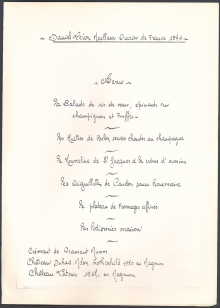 ~ Daniel Meilleur Ouvrier de France 1976 ~
~ Menu ~
La Salade de ris de veau, épinards aux
champignons et Truffes
Les Huîtres de Belon, chaudes au champagne
La de St Jacques à la crème d'oursins
Les Aiguillettes de Canard sauce
Le plateau de fromages affinés
Les Pâtisseries maison
Crémant de Cramant Mumm
Château Rothschild en Magnum
Château Latour en Magnum